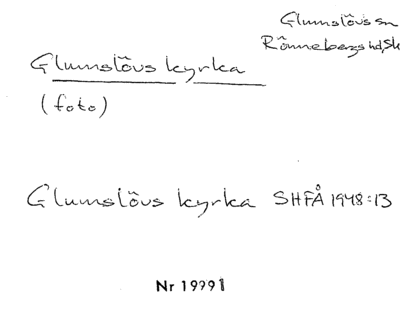 Glumslövs sn
Rönnebergs hd, Sk
Glumslövs kyrka
(foto)
Glumslövs kyrka SHFÅ 1948:13
Nr 19991